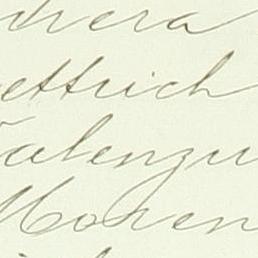 hera
ettrich
Valenzu
Moren